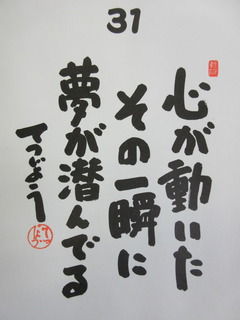 31
心が動いた
その一瞬に
夢が潜んでる
てつじょう